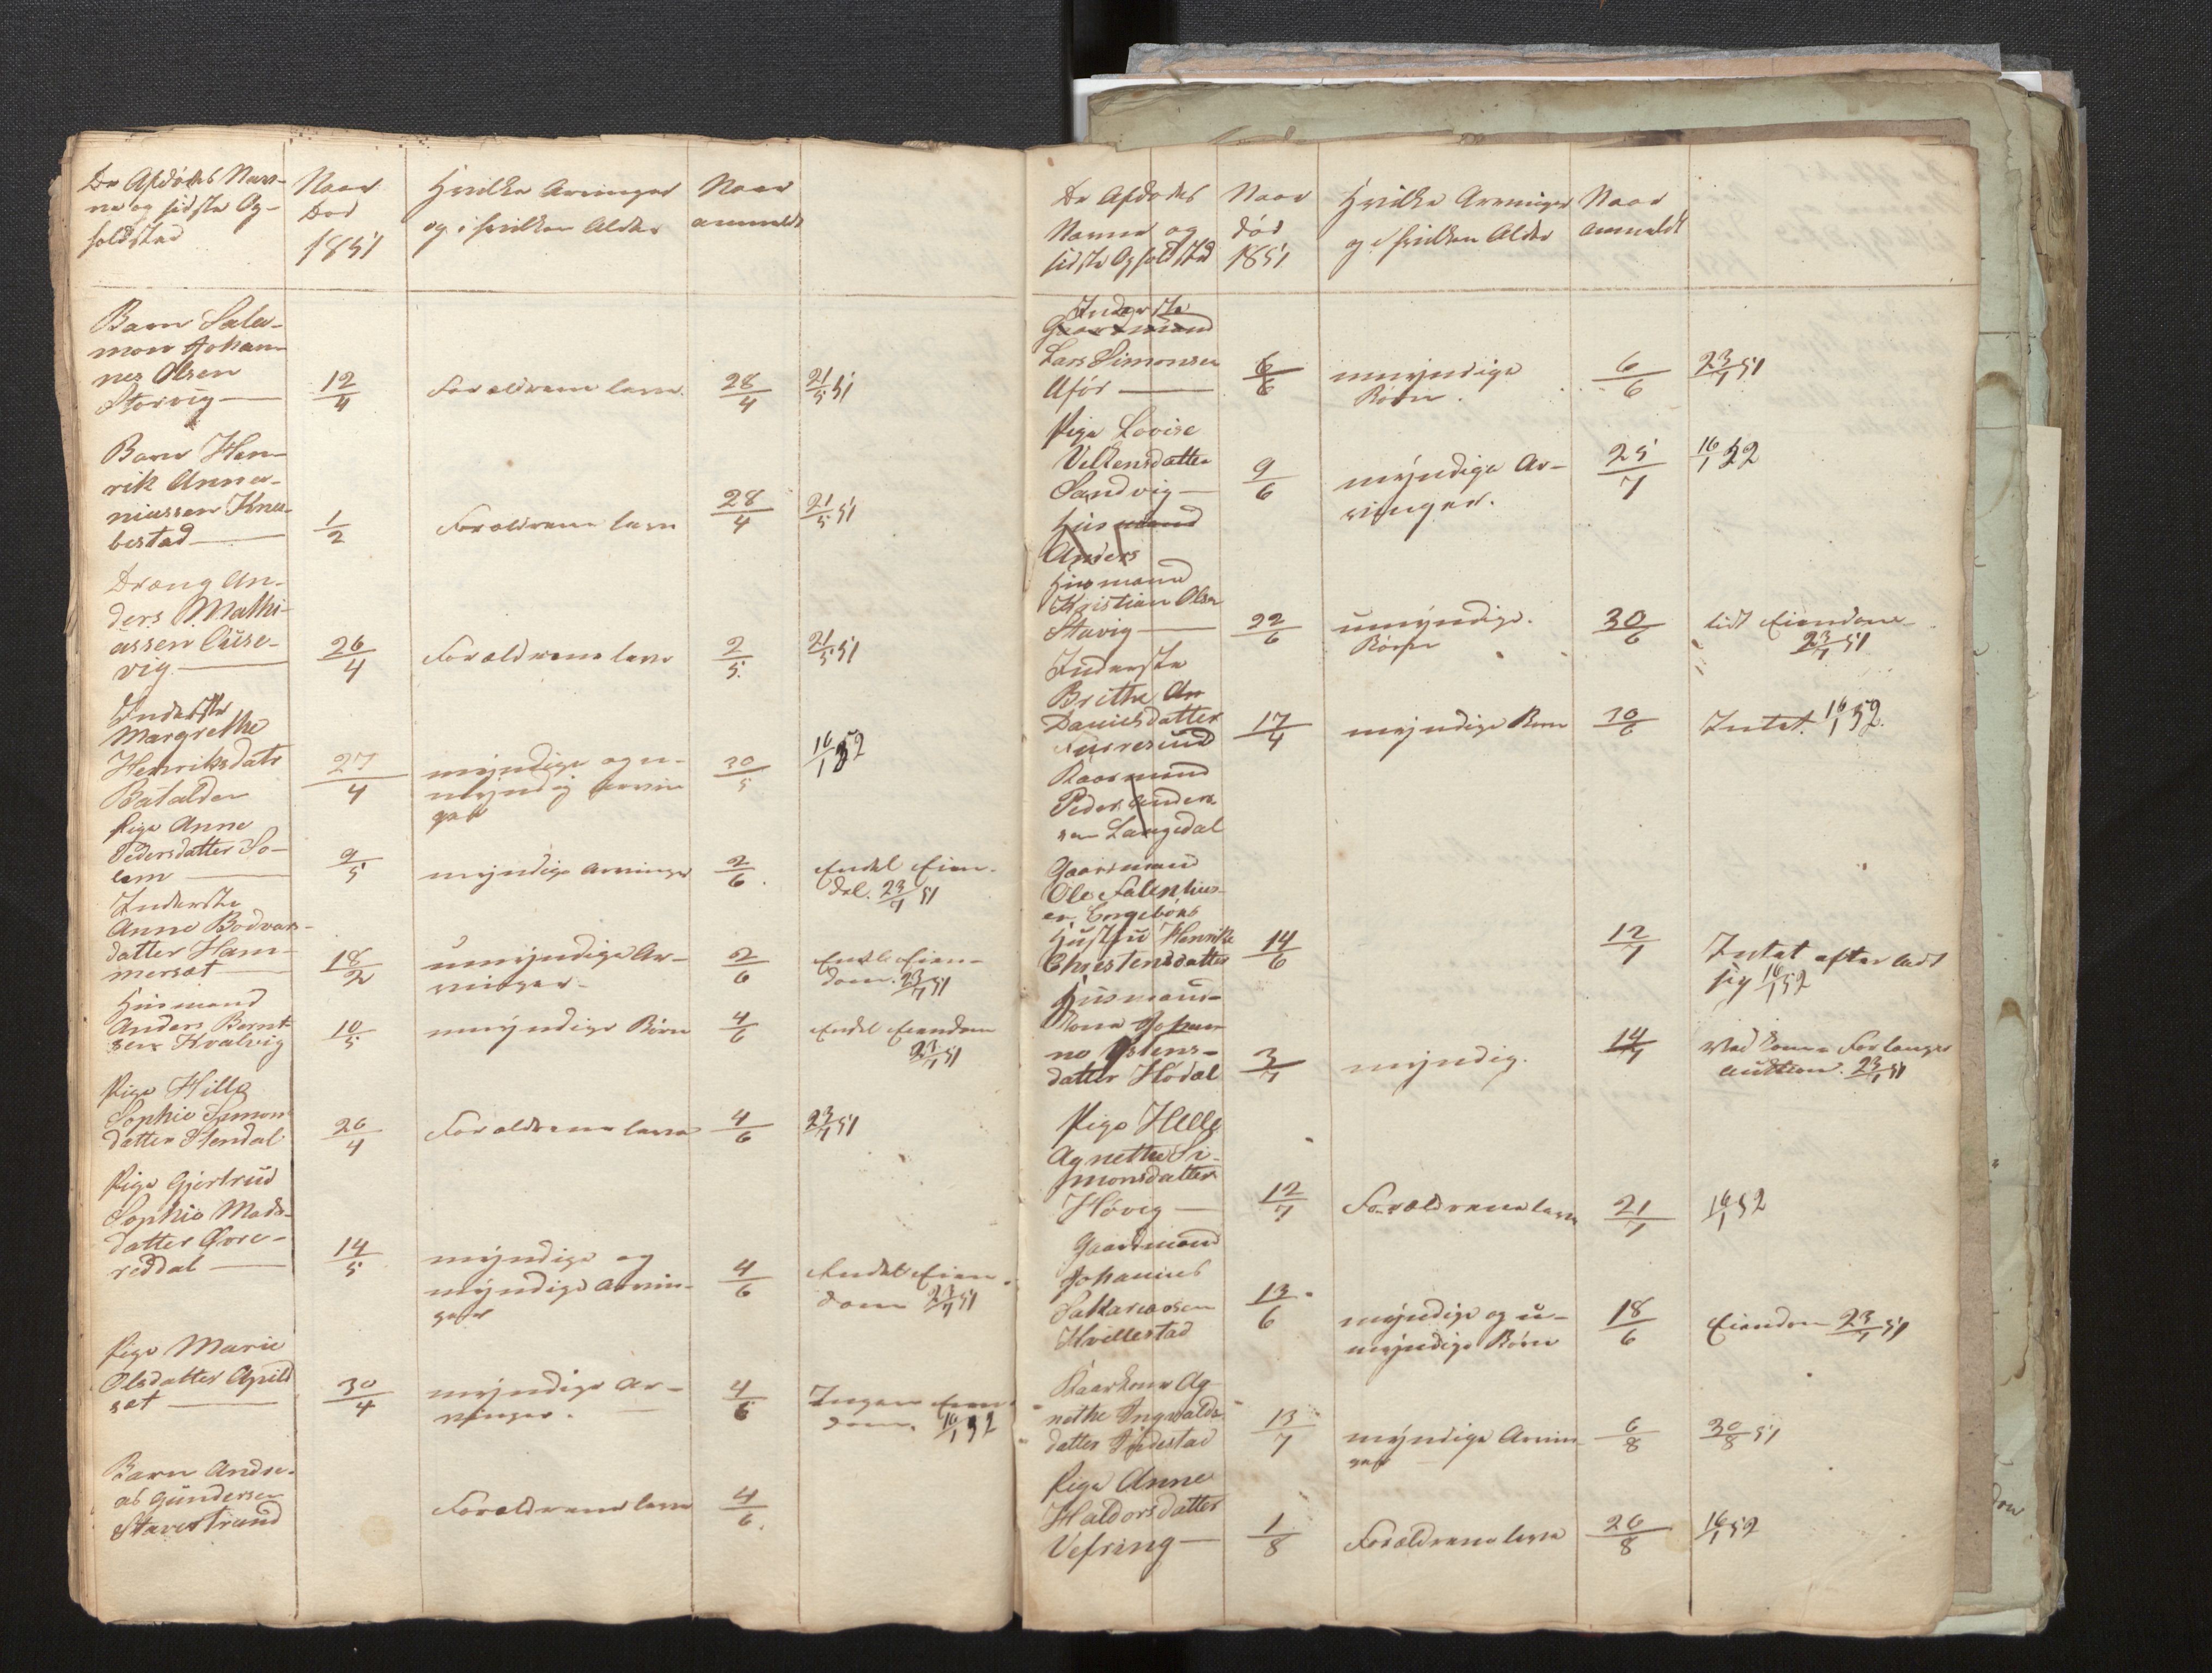 De Afdødes Nav-
ne og sidste Op-
holdsted
Naar
Død
1851
Hvilke Arvinger
og i hvilken Alder
Naar
anmeldt
Barn Salu-
mon Johan-
nes Olsen
Storvig —
12/4
Forældrene leve.
28/4
21/5 51
Barn Hen-
rik Anna-
niassen Kna-
bestad —
1/2
Forældrene leve
28/4
21/5 51
Dræng An-
ders Mathi-
assen Ause-
vig —
26/4
Forældrene leve
2/5.
21/5 51
Inderste
Margrethe
Henriksdatr
Batalden
27/4
myndige og u-
myndig Arvin
ger
30/5
16/1 52
Pige Anne
Pedersdatter So-
lem —
9/5
myndige Arvinger
2/6.
Endel Eien-
del. 23/7 51
Inderste
Anne Bodvars-
datter Ham-
merset —
18/2
umyndige Ar-
vinger-
2/6
Endel Eien-
dom. 23/7 51
Husmand
Anders Bernt-
sen Kvalvig
10/5
myndige Børn
4/6
Endel Eiendom
23/7 51
Pige Hille
Sophie Simons
datter Stendal
26/4
Forældrene leve
4/6
23/7 51
Pige Gjertrud
Sophie Mads-
datter Øvre-
reddal —
14/5
myndige og
myndige Arvin-
ger
4/6
Endel Eien-
dom 23/7 51
Pige Marie
Olsdatter Apild
set —
30/4
myndige Ar-
vinger. —
4/6
Ingen Eien-
dom. 16/1 52
Barn Andre-
as Gundersen
Stavestrand
Forældrene leve
4/6.
De Afdødes
Navne og
sidste Opholdsted
Naar
død
1851
Hvilke Arvinger
og i hvilken Alder
Naar
Anmeldt
Inderste
Gaardmand
Lars Simonsen
Afør —
6/6
umyndige
Børn.
6/6
23/7 51
Pige Lovise
Veltensdatter
Sandvig —
9/6
myndige Ar-
vinger.
25/7
16/1 52
Husmand
Anders
Husmand
Kristian Olsen
Stavig —
22/6
umyndige.
Børn
30/6
lidt Eiendom
23/7 51
Inderste
Brithe An
Danielsdatter
Furresund
17/4
myndige Børn
30/6
Intet. 16/1 52.
Kaarmand
Peder Anders
sen Langedal
Gaardmand
Ole Falenhus
en Engebøns
Hustru Henrike
Christensdatter
14/6
12/7
Intet efterladt
sig 16/1 52
Husmands-
Kone Johan-
ne Ystens-
datter Hødal
3/7
myndig.
14/7
Ved Kone Forlanger
auction. 23/7 51
Pige Helle
Agnethe Si-
monsdatter
Høvig —
12/7
Forældrene leve
21/7
16/1 52
Gaardmand
Johannes
Sakariassen
Hvillestad
13/6
myndige og u-
myndige Børn
18/6
Eiendom 23/7 51
Kaarkone Ag-
nethe Ingvalds-
datter Indestad
13/7
myndige Arvin
ger
6/8
30/8 51
Pige Anne
Haldorsdatter
Vefring —
1/8
Forældrene leve
26/8
16/1 52